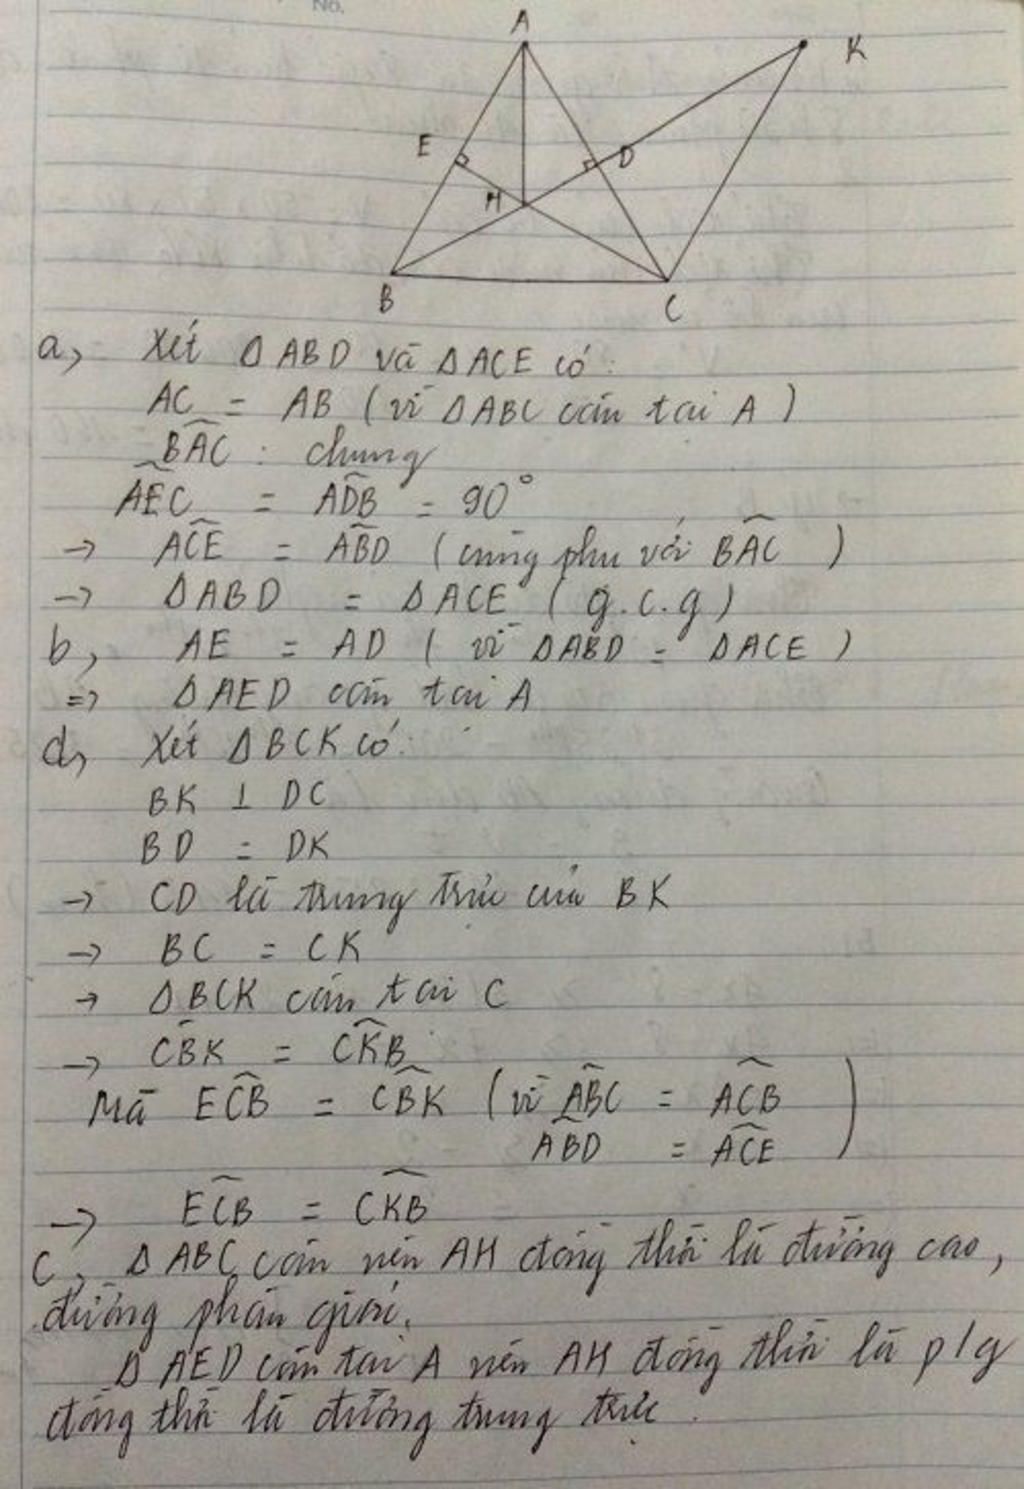 No.
A
K
E
D
H
B
C
a, Xét ΔABD và ΔACE có:
AC = AB (vì ΔABC cân tại A)
\widehat{BAC} : chung
\widehat{AEC} = \widehat{ADB} = 90°
→ \widehat{ACE} = \widehat{ABD} (cùng phụ với \widehat{BAC})
→ ΔABD = ΔACE (g.c.g)
b, AE = AD (vì ΔABD = ΔACE)
=> ΔAED cân tại A
d, Xét ΔBCK có:
BK ⊥ DC
BD = DK
→ CD là trung trực của BK
→ BC = CK
→ ΔBCK cân tại C
→ \widehat{CBK} = \widehat{CKB}
Mà \widehat{ECB} = \widehat{CBK} (vì \widehat{ABC} = \widehat{ACB}
\widehat{ABD} = \widehat{ACE})
→ \widehat{ECB} = \widehat{CKB}
c, ΔABC cân nên AH đồng thời là đường cao,
đường phân giác.
ΔAED cân tại A nên AH đồng thời là p/g
đồng thời là đường trung trực.